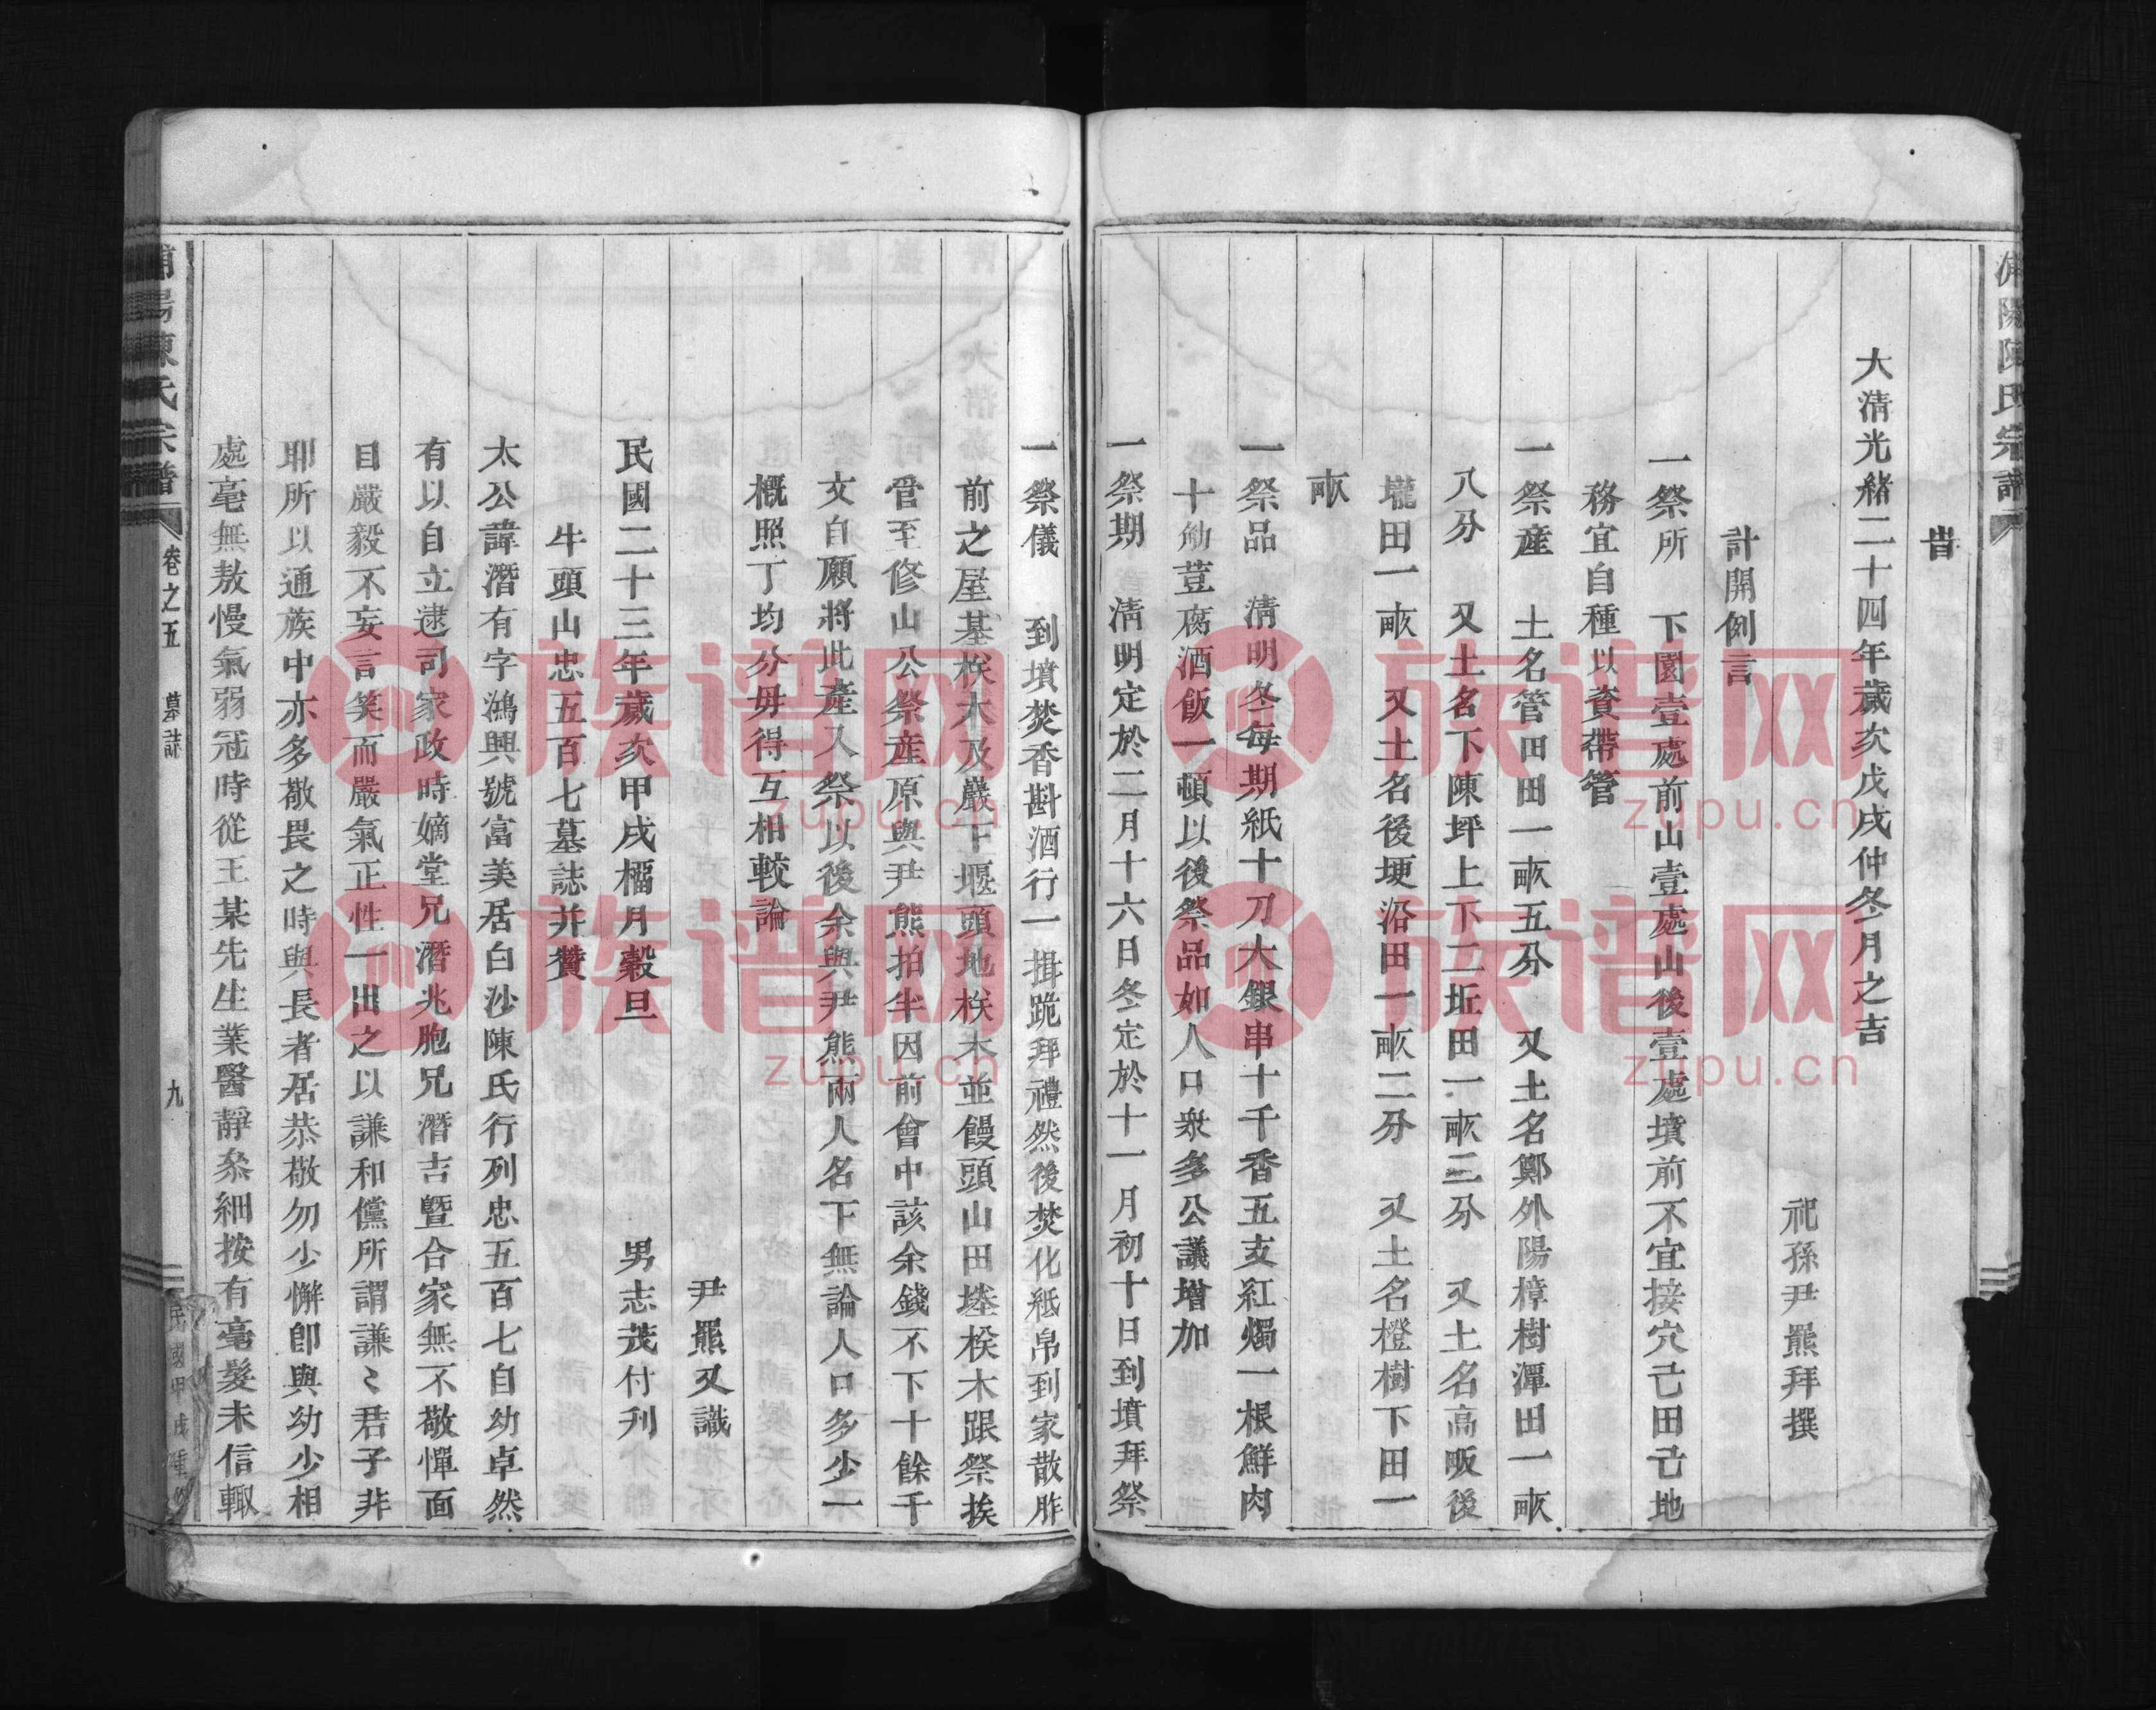 浦陽陳氏宗譜
旹
大清光緒二十四年歲次戊戌仲冬月之吉
祀孫尹羆拜撰
計開例言
一祭所　下園壹處前山壹處山後壹處墳前不宜接穴己田己地
務宜自種以資帶管
一祭産　土名管田田一畝五分　又土名鄭外陽樟樹潭田一畝
八分　又土名下陳坪上下二坵田一畝三分　又土名高畈後
壠田一畝　又土名後埂沿田一畝二分　又土名橙樹下田一
畝
一祭品　清明冬每期紙十刀大銀串十千香五支紅燭一根鮮肉
十觔荳腐酒飯一頓以後祭品如人口衆多公議增加
一祭期　清明定於二月十六日冬定於十一月初十日到墳拜祭
一祭儀　到墳焚香斟酒行一揖跪拜禮然後焚化紙帛到家散胙
前之屋基樣大及嚴下堰頭地樣木並饅頭山田塔樣木跟祭挨
管至修山公祭産原與尹熊拍半因前會中該余錢不下十餘千
文自願將此產又祭以後余與尹熊兩人名下無論人口多少一
概照丁均分毋得互相較論
尹羆又識
民國二十三年歲次甲戌橊月穀旦　男志茂付刋
牛頭山忠五百七墓誌并贊
太公諱潛有字鴻興號富美居白沙陳氏行列忠五百七自幼卓然
有以自立逮司家政時嫡堂兄潛兆胞兄潛吉曁合家無不敬憚面
目嚴毅不妄言笑而嚴氣正性一出之以謙和儻所謂謙〻君子非
耶所以通族中亦多敬畏之時與長者居恭敬勿少懈卽與幼少相
處毫無敖慢氣弱冠時從王某先生業醫靜叅細按有毫髮未信輙
浦陽陳氏宗譜　卷之五　墓誌　九　民國甲戌重修
族谱网
zupu.cn
族谱网
zupu.cn
族谱网
zupu.cn
族谱网
zupu.cn